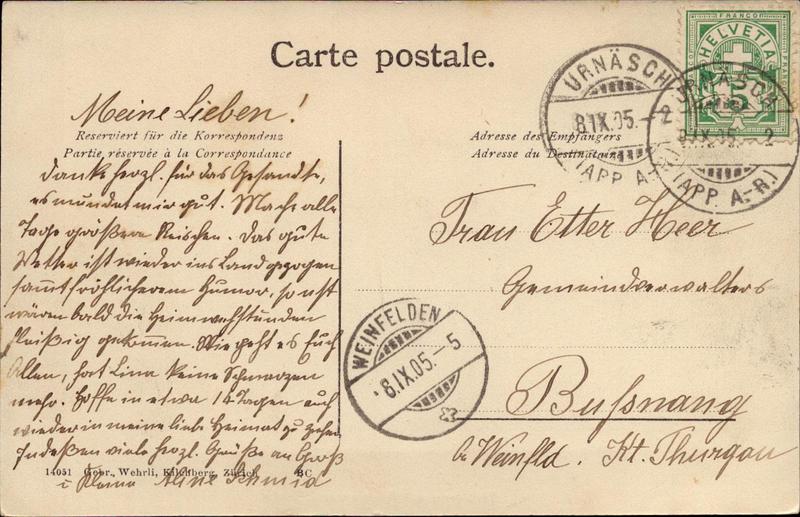 Carte postale.
Meine Lieben!
Reserviert für die Korrespondenz
Partie réservée à la Correspondance
danke herzl. für das Gesandte,
es mundet mir gut. Mache alle
Tage größere Reischen. Das gute
Wetter ist wieder ins Land gezogen
sammt fröhlicherem Humor, sonst
wären bald die Heimwehstunden
fleißig gekommen. Wie geht es Euch
Allen, hat Lina keine Schmerzen
mehr. Hoffe in etwa 14 Tagen auch
wieder in meine liebe Heimat zu
Indeßen viele herzl. Grüße an Groß
14051 Gebr. Wehrli, Kilchberg, Zürich BC
u Kleine Aline Schmid
FRANCO
HELVETIA
URNÄSCH
8.IX.05.-2
(APP. A.-R.)
URNÄSCH
8.IX.05.-2
(APP. A.-R.)
Adresse des Empfängers
Adresse du Destinataire
Frau Etter Heer
Gemeindverwalters
WEINFELDEN
8.IX.05.-5
Bußnang
b/ Weinfld. Kt. Thurgau